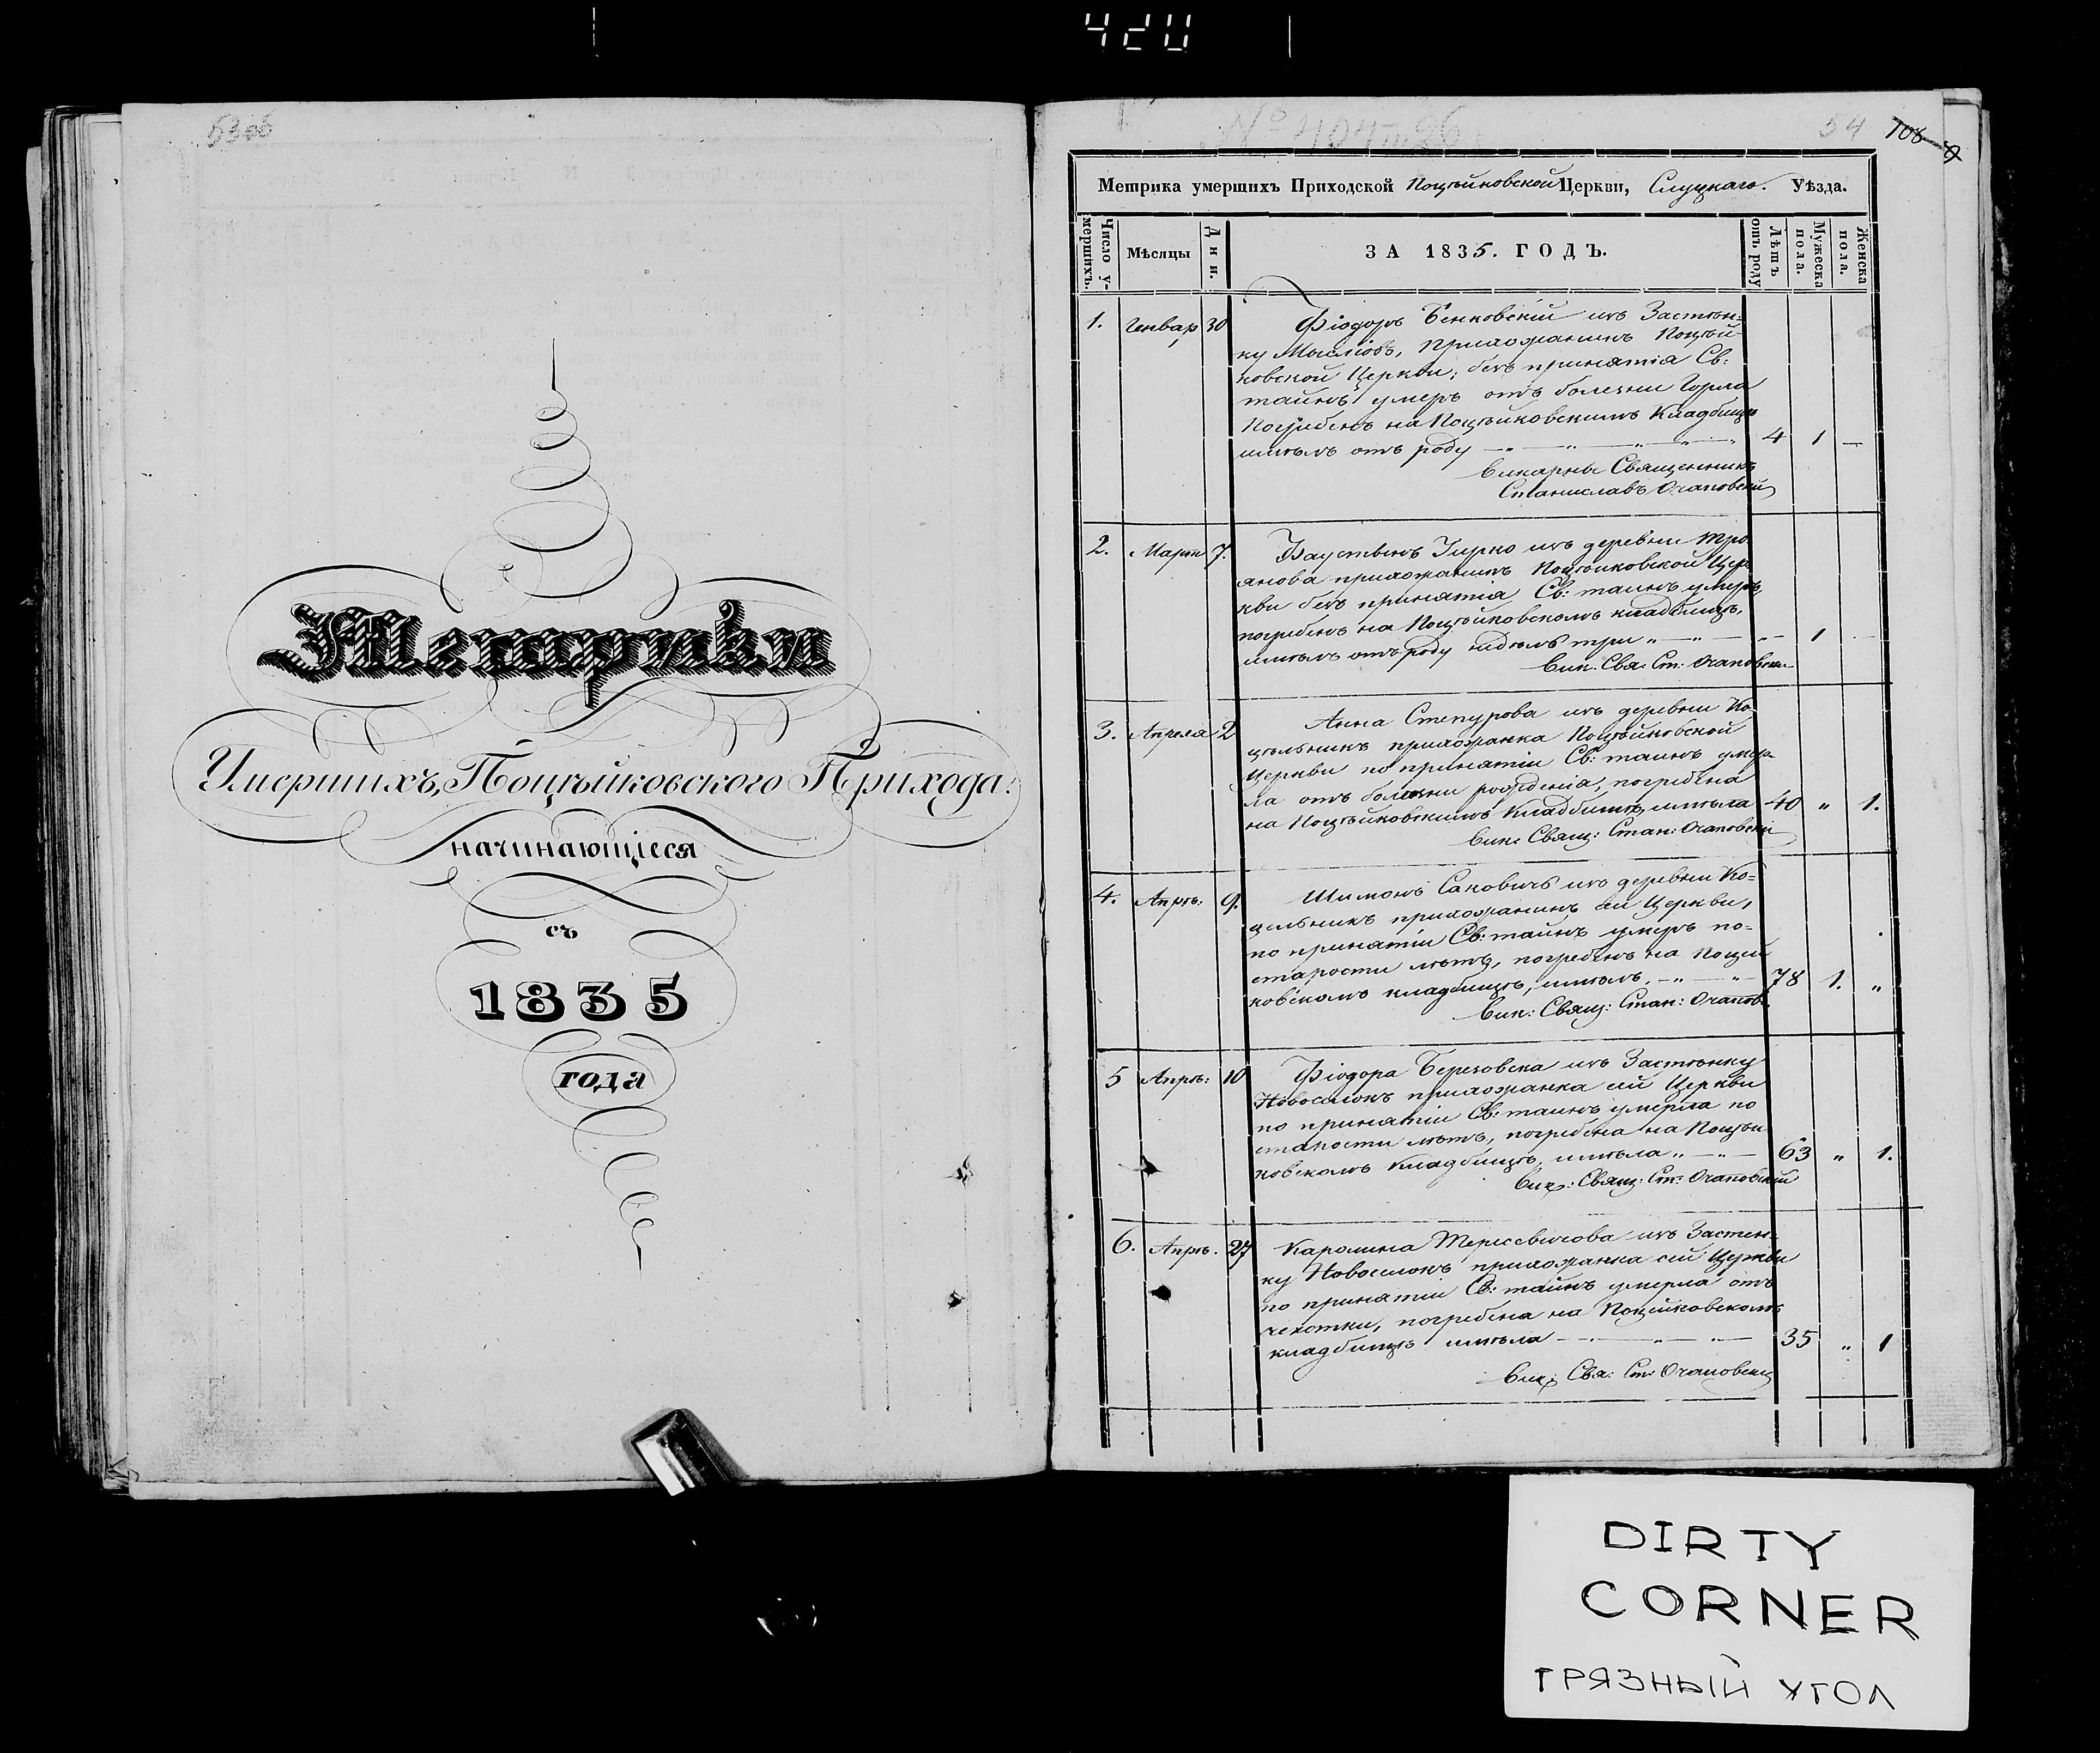 420
53об
Метрики
Умершихъ, Поцѣйковского Прихода:
начинающіеся
съ
1835
года
№ 404
54
108
Метрика умершихъ Приходской Поцѣйковской Церкви, Слуцкаго. Уѣзда.
Число умершихъ.
Мѣсяцы
Дни.
ЗА 1835. ГОДЪ.
Лѣтъ отъ роду
Мужеска пола.
Женска пола.
1. Генвар 30 Фіодоръ Бенковскій изъ Застѣн-
ку Мысліовъ, прихожанинъ Поцѣй-
ковской Церкви; безъ принятія Св:
тайнъ умеръ отъ болезни Горла
Погребенъ на Поцѣйковскимъ Кладбищѣ
имѣлъ отъ роду 4 1 —
Викарны Священникъ
Станиславъ Очаповскій
2. Марта 7. изъ деревни Тро
янова прихожанинъ Поцѣйковской Цер
кви безъ принятія Св: таинъ умеръ,
погребенъ на Поцѣйковскомъ кладбищѣ,
имѣлъ отъ роду недѣлъ три 1
Вик: Свя: Ст: Очаповски
3. Апреля 2 Анна Степурова изъ деревни Ко
цѣльникъ прихожанка Поцѣйковской
Церкви по принятіи Св: таинъ умер
ла отъ болезни рожденія, погребена
на Поцѣйковскимъ Кладбищѣ имѣла 40 „ 1.
Вик: Свящ: Стан: Очаповскій
4. Апрѣ: 9. Шимонъ Саковичъ изъ деревни Ко=
цельникъ прихожанинъ сей Церкви,
по принятіи Св: тайнъ умеръ по-
старости лѣтъ, погребенъ на Поцей
ковскомъ кладбищѣ, имѣлъ 78 1. „
Вик: Свящ: Стан: Очапов:
5 Апрѣ: 10 Фіодора Березовска изъ Застѣнку
Новоселокъ прихожанка сей Церкви
по принятіи Св: таинъ умерла по
старости лѣтъ, погребена на Поцѣй
ковскомъ Кладбищѣ, имѣла 63 „ 1.
Вик: Свящ: Ст: Очаповскій
6. Апрѣ. 27 Каролина из Застен-
ку Новоселокъ прихожанка сей Церкви
по принятіи Св: тайнъ умерла отъ
чехотки, погребена на Поцейковскомъ
кладбищѣ имѣла 35 „ 1
Вик: Свя: Ст: Очаповски
DIRTY
CORNER
ГРЯЗНЫЙ УГОЛ